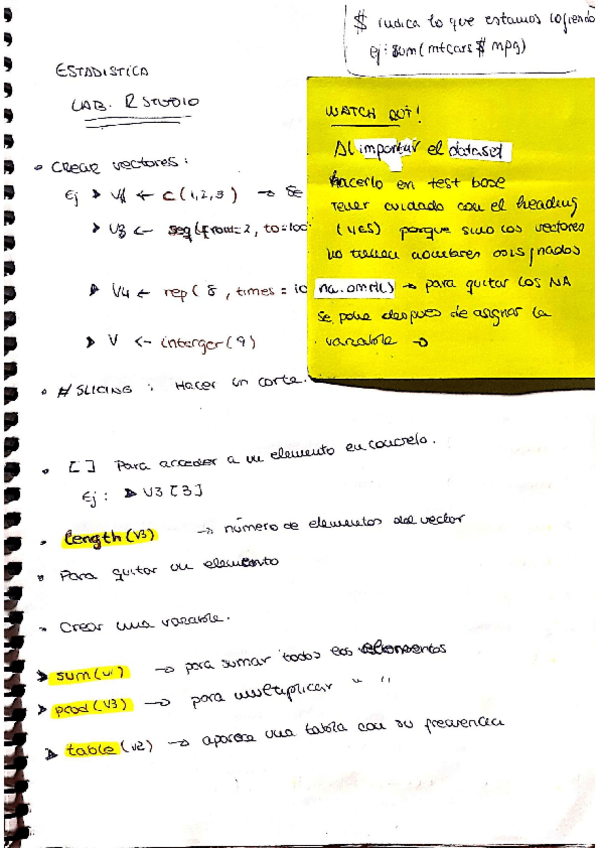 $ indica lo que estamos cogiendo
ej: sum(mtcars $ mpg)
ESTADISTICA
LAB. R STUDIO
WATCH OUT!
Al importar el dataset
hacerlo en test base
tener cuidado con el heading
(yes) porque sino los vectores
no tienen nombres asignados
na.omit() → para quitar los NA
se pone despues de asignar la
variable →
• Crear vectores:
Ej ➤ V1 ← c(1,2,3) → Se
➤ V3 <- seq(from=2, to=100
➤ V4 ← rep(8, times = 10
➤ V <- interger(9)
• # SLICING : Hacer un corte.
• [ ] Para acceder a un elemento en concreto.
Ej: ➤ V3 [3]
• length(V3) → número de elementos del vector
• Para quitar un elemento
• Crear una variable.
➤ sum(v1) → para sumar todos los elementos
➤ prod(V3) → para multiplicar " "
➤ table(v2) → aparece una tabla con su frecuencia